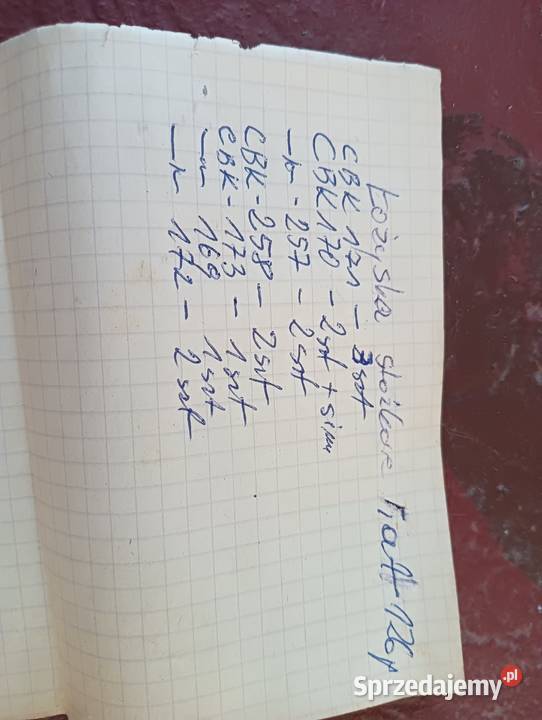 Łożyska stożkowe Fiat 126p
CBK 171 - 3szt
CBK 170 - 2szt + sim
-"- 257 - 2szt
CBK-258 - 2szt
CBK-173 - 1szt
-"- 169 1szt
-"- 172 - 2szt
Sprzedajemy.pl